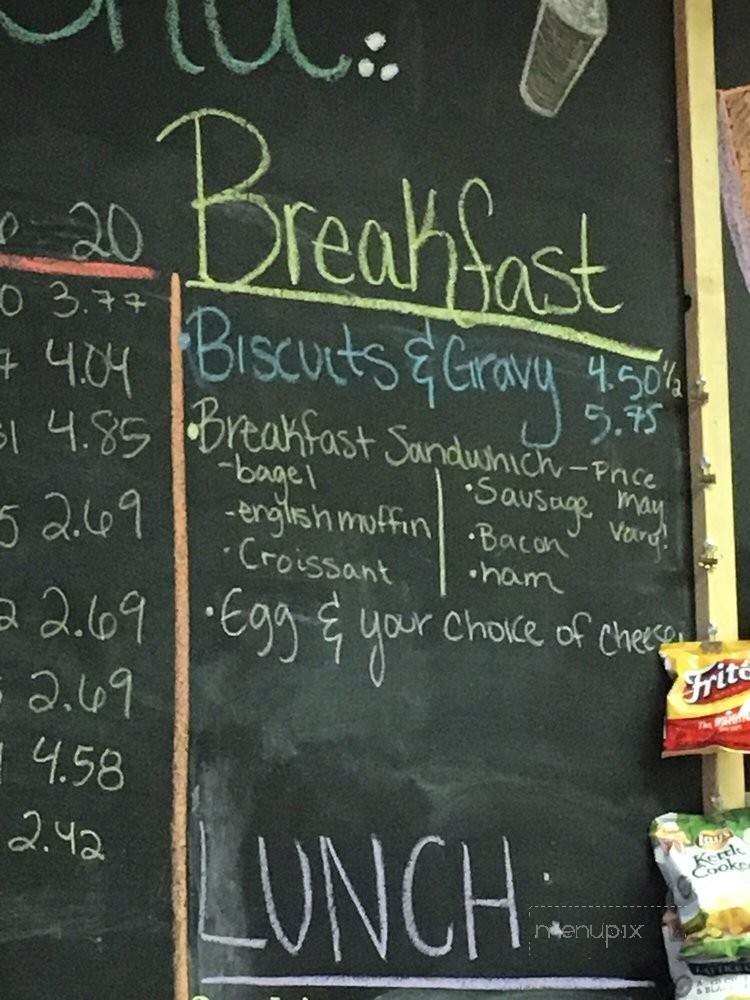 20
3.77
4.04
4.85
2.69
2.69
2.69
4.58
2.42
Breakfast
Biscuits & Gravy 4.50 1/2
5.75
• Breakfast Sandwhich - Price may vary!
- bagel
- english muffin
• Croissant
• Sausage
• Bacon
• ham
• Egg & your choice of cheese
LUNCH
menupix
Lay's
Kettle
Cooked